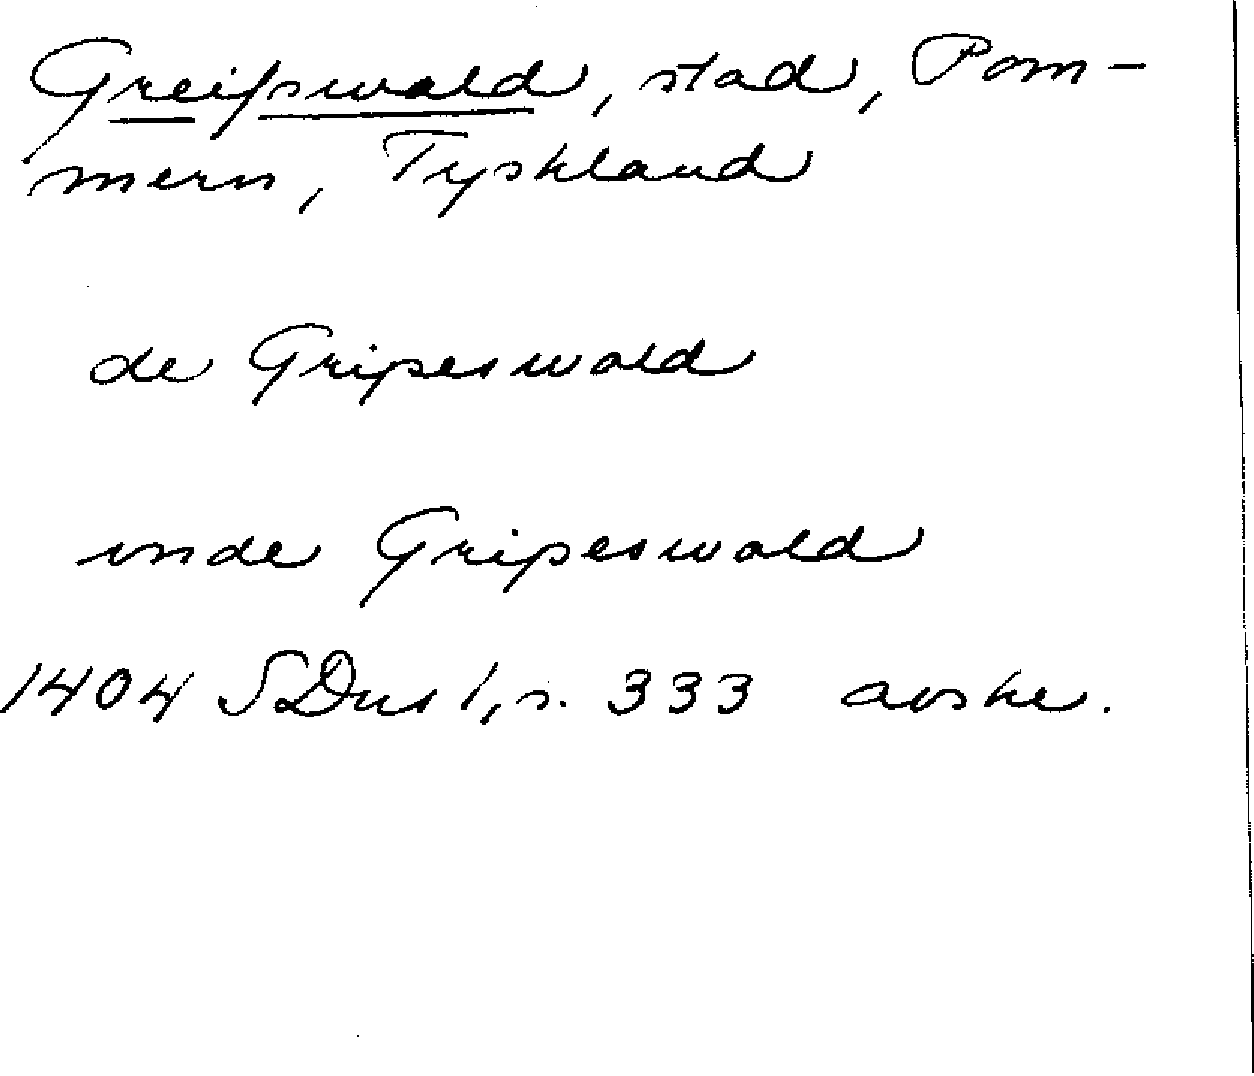 Greifswald, stad, Pom-
mern, Tyskland
de Gripeswald
vnde Gripeswald
1404 SDns 1, s. 333 avskr.